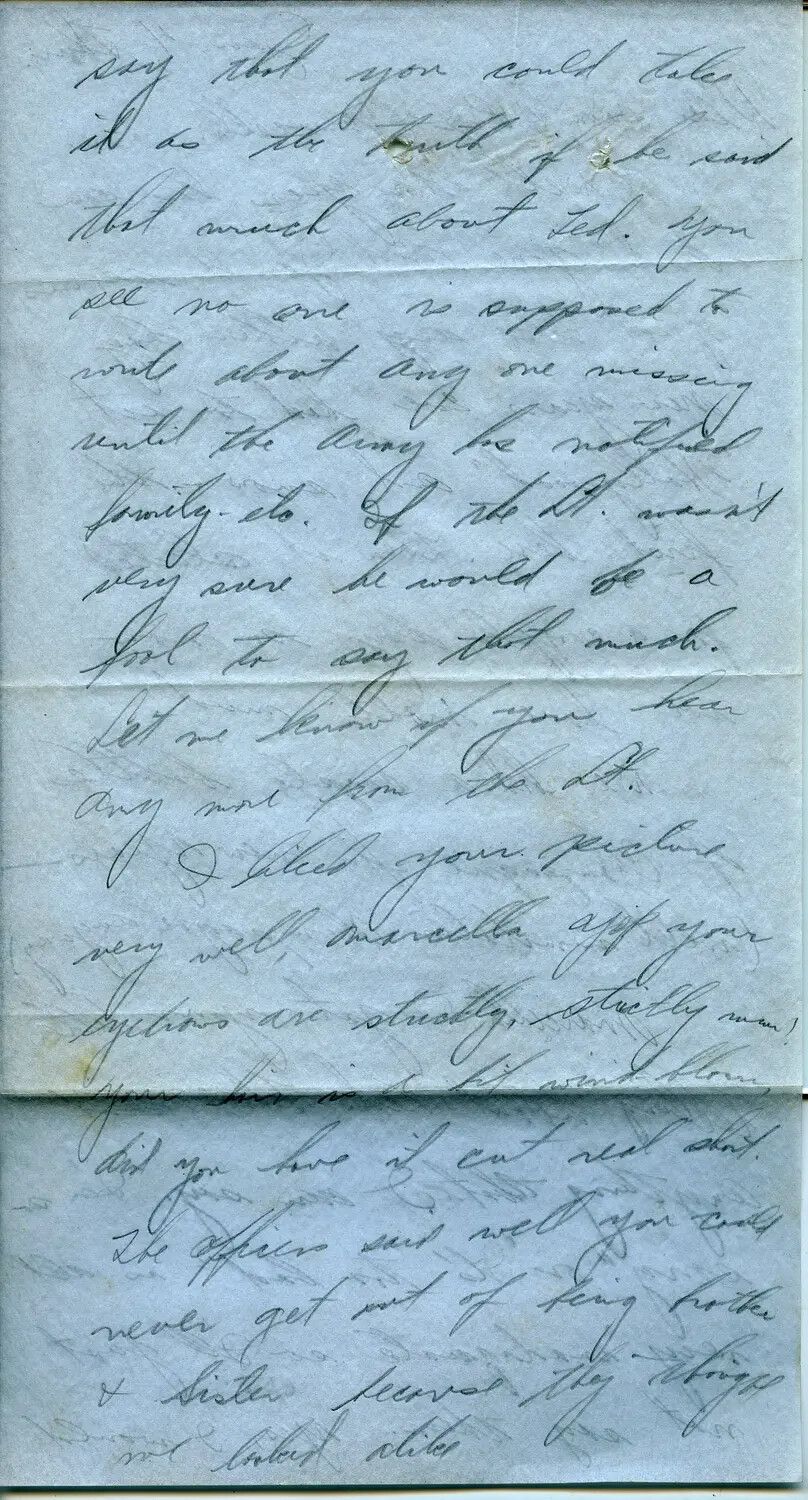 say that you could take
it as the truth if he said
that much about Ted. You
see no one is supposed to
write about any one missing
until the Army has notified
family - etc. If the Lt. wasn't
very sure he would be a
fool to say that much.
Let me know if you hear
any more from the Lt.
I liked your picture
very well, Marcella your
eyebrows are strictly, strictly
your hair is a bit wind blown,
did you have it cut real short.
The officers said well you could
never get out of being brother
& sister because they thought
we looked alike